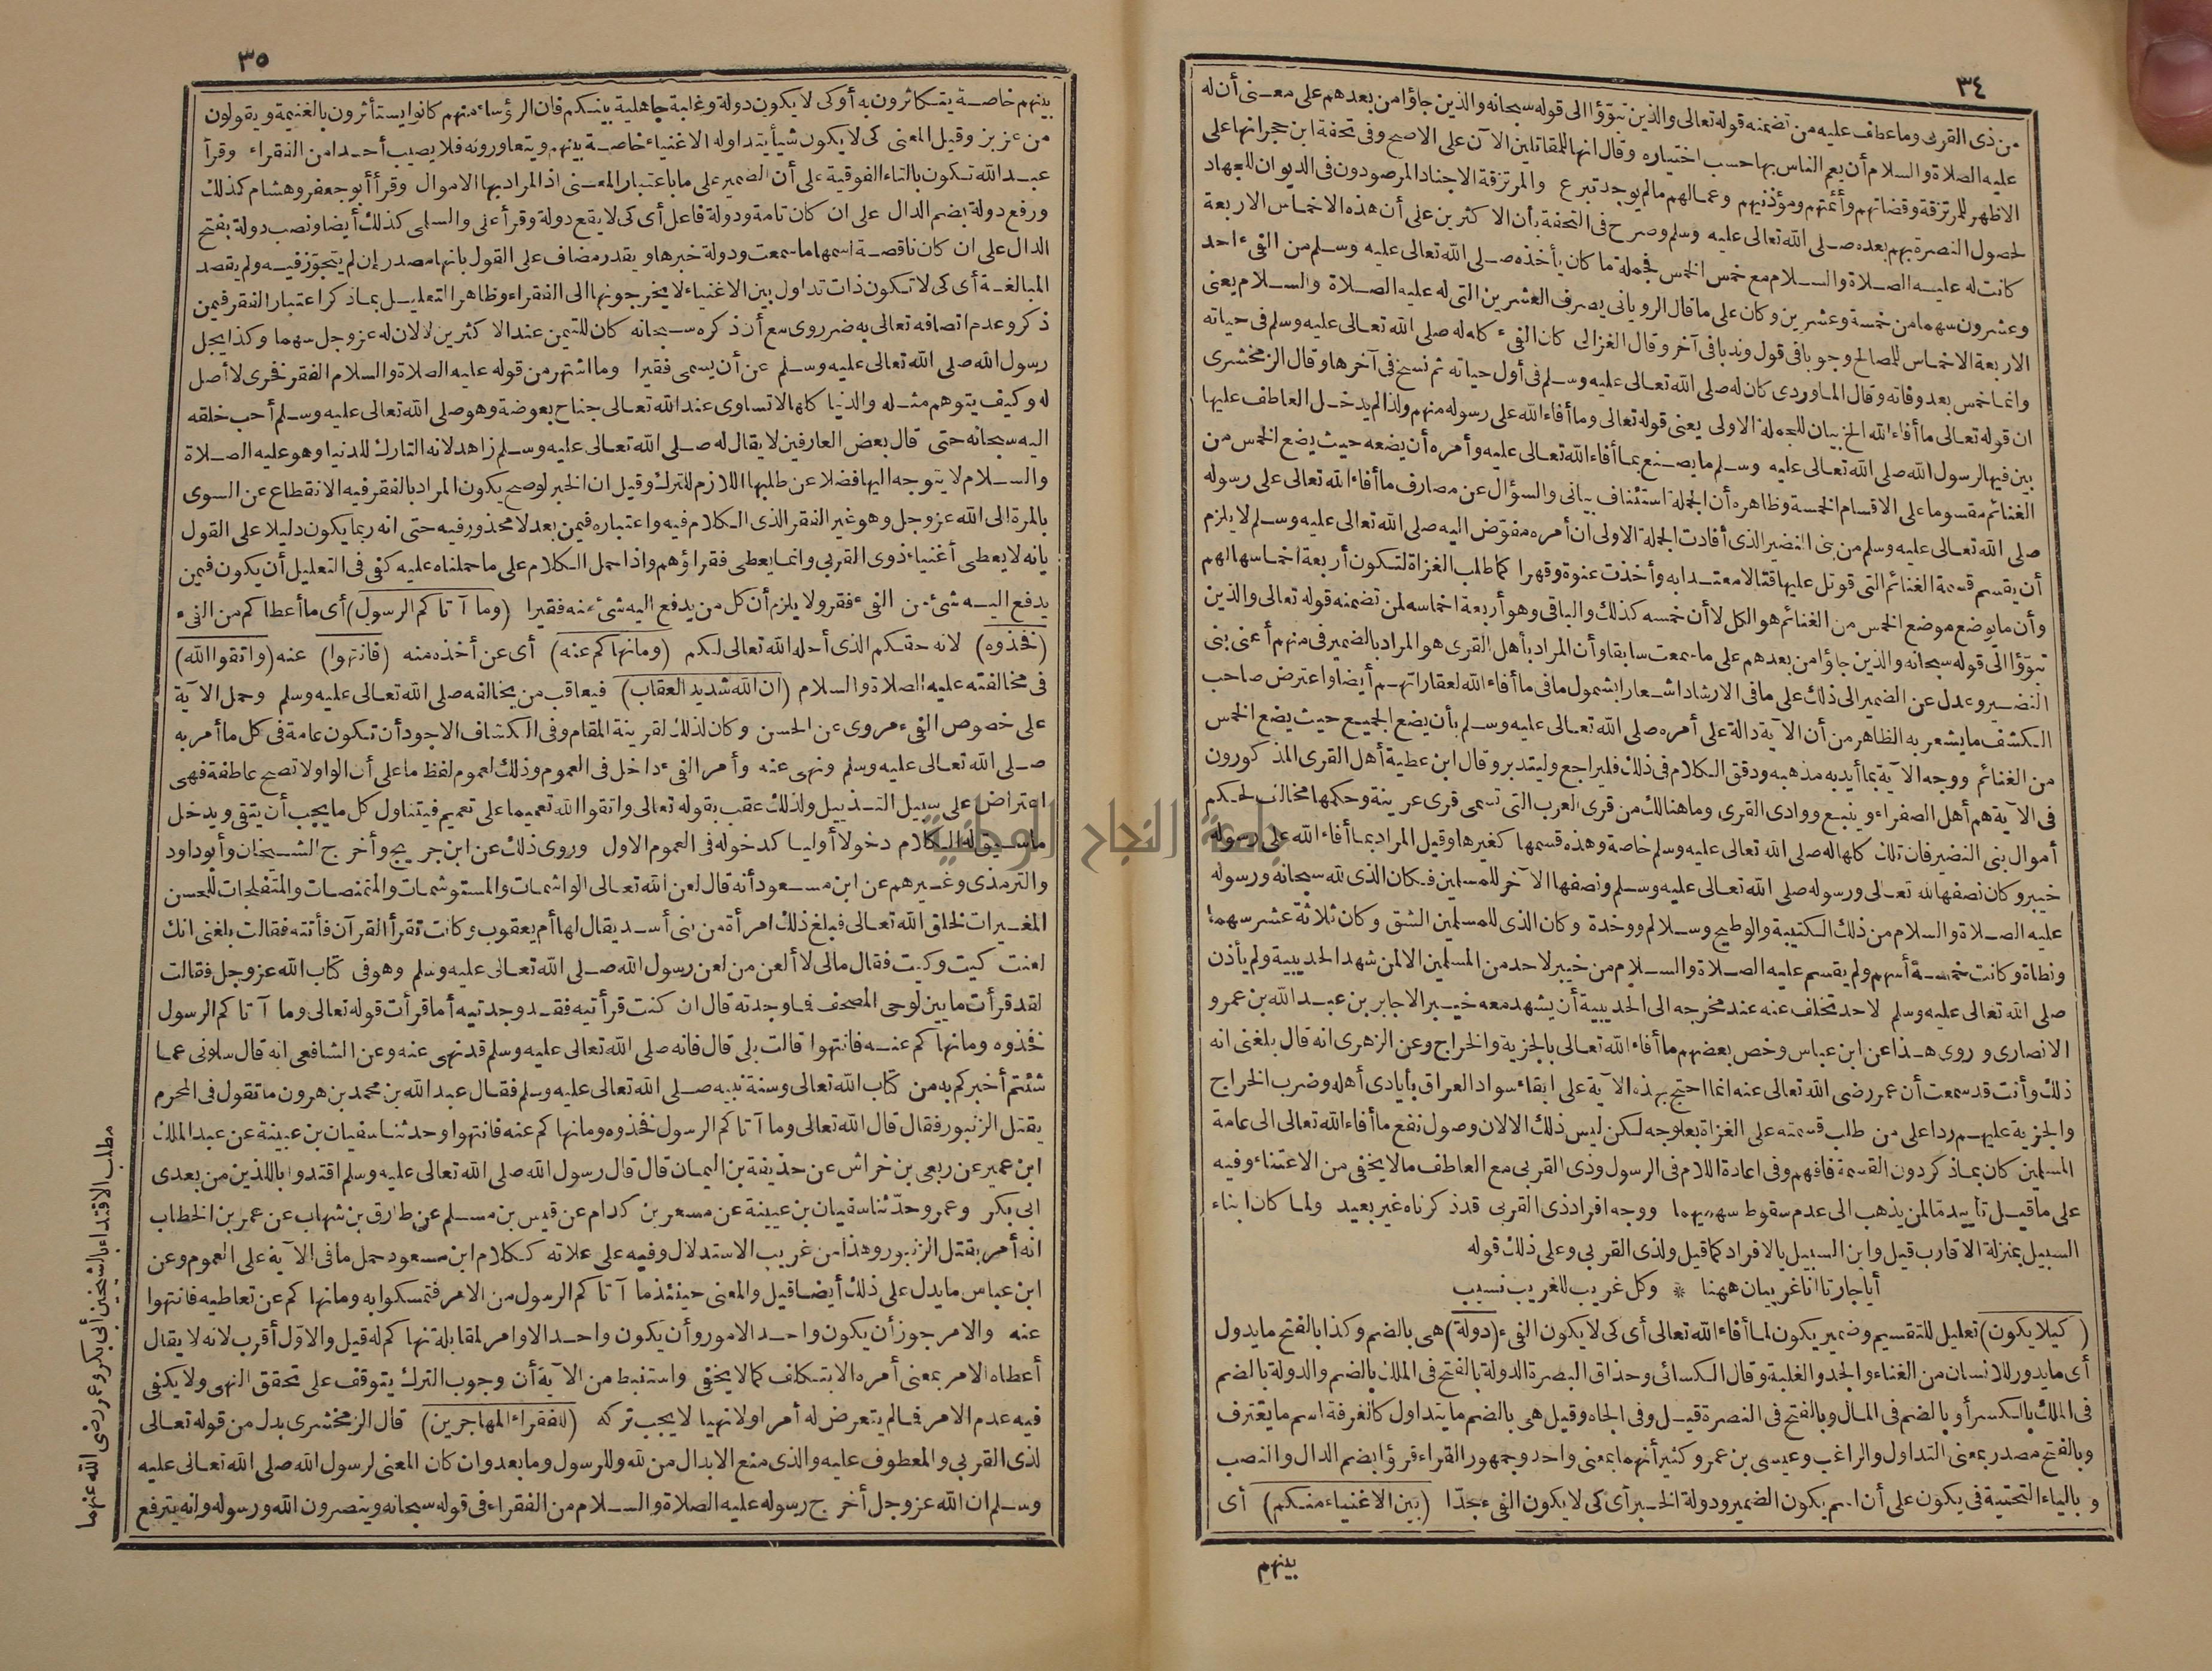 ٣٤
من ذى القربى وما عطف عليه من تضمنه قوله تعالى والذين تبوؤا الى قوله سبحانه والذين جاؤا من بعدهم على معنى أن له
عليه الصلاة والسلام أن يعم الناس بها حسب اختياره وقال انها للمقاتلين الآن على الاصح وفى تحفة ابن حجر انها على
الاظهر للمرتزقة وقضاتهم وأئمتهم ومؤذنيهم وعمالهم مالم يوجد تبرع والمرتزقة الاجناد المرصودون فى الديوان للجهاد
لحصول النصرة بهم بعده صلى الله تعالى عليه وسلم وصرح فى التحفة بأن الاكثرين على أن هذه الاخماس الاربعة
كانت له عليه الصلاة والسلام مع خمس الخمس فجملة ما كان يأخذه صلى الله تعالى عليه وسلم من الفىء احد
وعشرون سهما من خمسة وعشرين وكان على ما قال الرويانى يصرف العشرين التى له عليه الصلاة والسلام يعنى
الاربعة الاخماس للمصالح وجوبا فى قول وندبا فى آخر وقال الغزالى كان الفىء كله له صلى الله تعالى عليه وسلم فى حياته
وانما خمس بعد وفاته وقال الماوردى كان له صلى الله تعالى عليه وسلم فى أول حياته ثم نسخ فى آخرها وقال الزمخشرى
ان قوله تعالى ما أفاء الله الخ بيان للجملة الاولى يعنى قوله تعالى وما أفاء الله على رسوله منهم ولذا لم يدخل العاطف عليها
بين فيها لرسول الله صلى الله تعالى عليه وسلم ما يصنع بما أفاء الله تعالى عليه وأمره أن يضعه حيث يضع الخمس من
الغنائم مقسوما على الاقسام الخمسة وظاهره أن الجملة استئناف بيانى والسؤال عن مصارف ما أفاء الله تعالى على رسوله
صلى الله تعالى عليه وسلم من بنى النضير الذى أفادت الجملة الاولى ان أمره مفوّض اليه صلى الله تعالى عليه وسلم لا يلزم
أن يقسم قسمة الغنائم التى قوتل عليها قتالا معتدا به وأخذت عنوة وقهرا كما طلب الغزاة لتكون أربعة اخماسها لهم
وأن ما يوضع موضع الخمس من الغنائم هو الكل لا أن خمسه كذلك والباقى وهو أربعة اخماسه لمن تضمنه قوله تعالى والذين
تبوّؤا الى قوله سبحانه والذين جاؤا من بعدهم على ما سمعت سابقا وأن المراد بأهل القرى هو المراد بالضمير فى منهم أعنى بنى
النضير وعدل عن الضمير الى ذلك على ما فى الارشاد اشعارا بشمول ما فى ما أفاء الله لعقاراتهم أيضا واعترض صاحب
الكشف ما يشعر به الظاهر من أن الآية دالة على أمره صلى الله تعالى عليه وسلم بأن يضع الجميع حيث يضع الخمس
من الغنائم ووجه الآية بما أيد به مذهبه ودقق الكلام فى ذلك فليراجع وليتدبر وقال ابن عطية أهل القرى المذكورون
فى الآية هم أهل الصفراء وينبع ووادى القرى وما هنالك من قرى العرب التى تسمى قرى عرينة وحكمها مخالف لحكم
أموال بنى النضير فان تلك كلها له صلى الله تعالى عليه وسلم خاصة وهذه قسمها كغيرها وقيل المراد بما أفاء الله على رسوله
خيبر وكان نصفها لله تعالى ورسوله صلى الله تعالى عليه وسلم ونصفها الآخر للمسلمين فكان الذى لله سبحانه ورسوله
عليه الصلاة والسلام من ذلك الكتيبة والوطيح وسلالم ووخدة وكان الذى للمسلمين الشق وكان ثلاثة عشر سهما
ونطاة وكانت خمسة أسهم ولم يقسم عليه الصلاة والسلام من خيبر لاحد من المسلمين الا لمن شهد الحديبية ولم يأذن
صلى الله تعالى عليه وسلم لاحد تخلف عنه عند مخرجه الى الحديبية أن يشهد معه خيبر الا جابر بن عبد الله بن عمرو
الانصارى وروى هذا عن ابن عباس وخص بعضهم ما أفاء الله تعالى بالجزية والخراج وعن الزهرى انه قال بلغنى انه
ذلك وأنت قد سمعت أن عمر رضى الله تعالى عنه انما احتج بهذه الآية على ابقاء سواد العراق بأيادى أهله وضرب الخراج
والجزية عليهم ردا على من طلب قسمته على الغزاة بعلوجه لكن ليس ذلك الا لان وصول نفع ما أفاء الله تعالى الى عامة
المسلمين كان بماذكر دون القسمة فافهم وفى اعادة اللام فى الرسول وذى القربى مع العاطف ما لا يخفى من الاعتناء وفيه
على ما قيل تأييد مّا لمن يذهب الى عدم سقوط سهميهما ووجه افراد ذى القربى قد ذكرناه غير بعيد ولما كان ابناء
السبيل بمنزلة الاقارب قيل وابن السبيل بالافراد كما قيل ولذى القربى وعلى ذلك قوله
أيا جارتا انا غريبان ههنا * وكل غريب للغريب نسيب
(كيلا يكون) تعليل للتقسيم وضمير يكون لما أفاء الله تعالى أى كى لا يكون الفىء (دولة) هى بالضم وكذا بالفتح ما يدول
أى ما يدور للانسان من الغناء والجد والغلبة وقال الكسائى وحذاق البصرة الدولة بالفتح فى الملك بالضم والدولة بالضم
فى الملك بالكسر أو بالضم فى المال وبالفتح فى النصرة قيل وفى الجاه وقيل هى بالضم ما يتداول كالغرفة اسم ما يغترف
وبالفتح مصدر بمعنى التداول والراغب وعيسى بن عمر وكثير أنهما بمعنى واحد وجمهور القراء قرؤا بضم الدال والنصب
وبالياء التحتية فى يكون على أن اسم يكون الضمير ودولة الخبر أى كى لا يكون الفىء جدّا (بين الاغنياء منكم) أى
بينهم
٣٥
بينهم خاصة يتكاثرون به أو كى لا يكون دولة وغلبة جاهلية بينكم فان الرؤساء منهم كانوا يستأثرون بالغنيمة ويقولون
من عز بز وقيل المعنى كى لا يكون شيأ يتداوله الاغنياء خاصة بينهم ويتعاورونه فلا يصيب أحدا من الفقراء وقرأ
عبد الله تكون بالتاء الفوقية على أن الضمير على ما باعتبار المعنى اذ المراد بها الاموال وقرأ أبو جعفر وهشام كذلك
ورفع دولة بضم الدال على ان كان تامة ودولة فاعل أى كى لا يقع دولة وقرأ على والسلمى كذلك أيضا ونصب دولة بفتح
الدال على ان كان ناقصة اسمها ما سمعت ودولة خبرها ويقدر مضاف على القول بانها مصدر إن لم يتجوّز فيه ولم يقصد
المبالغة أى كى لا تكون ذات تداول بين الاغنياء لا يخرجونها الى الفقراء وظاهر التعليل بماذكر اعتبار الفقر فيمن
ذكر وعدم اتصافه تعالى به ضرورى مع أن ذكره سبحانه كان للتيمن عند الاكثرين لا لان له عز وجل سهما وكذا يجل
رسول الله صلى الله تعالى عليه وسلم عن أن يسمى فقيرا وما اشتهر من قوله عليه الصلاة والسلام الفقر فخرى لا أصل
له وكيف يتوهم مثله والدنيا كلها لا تساوى عند الله تعالى جناح بعوضة وهو صلى الله تعالى عليه وسلم أحب خلقه
اليه سبحانه حتى قال بعض العارفين لا يقال له صلى الله تعالى عليه وسلم زاهد لانه التارك للدنيا وهو عليه الصلاة
والسلام لا يتوجه اليها فضلا عن طلبها اللازم للترك وقيل ان الخبر لو صح يكون المراد بالفقر فيه الانقطاع عن السوى
بالمرة الى الله عز وجل وهو غير الفقر الذى الكلام فيه واعتباره فيمن بعد لا محذور فيه حتى انه ربما يكون دليلا على القول
بانه لا يعطى أغنياء ذوى القربى وانما يعطى فقراؤهم واذا حمل الكلام على ما حملناه عليه كفى فى التعليل أن يكون فيمن
يدفع اليه شئ من الفىء فقر ولا يلزم أن كل من يدفع اليه شئ منه فقيرا (وما آتاكم الرسول) أى ما أعطاكم من الفىء
(فخذوه) لانه حقكم الذى أحله الله تعالى لكم (وما نهاكم عنه) أى عن أخذه منه (فانتهوا) عنه (واتقوا الله)
فى مخالفته عليه الصلاة والسلام (ان الله شديد العقاب) فيعاقب من يخالفه صلى الله تعالى عليه وسلم وحمل الآية
على خصوص الفىء مروى عن الحسن وكان لذلك لقرينة المقام وفى الكشاف الاجود أن تكون عامة فى كل ما أمر به
صلى الله تعالى عليه وسلم ونهى عنه وأمر الفىء داخل فى العموم وذلك لعموم لفظ ما على أن الواو لا تصح عاطفة فهى
اعتراض على سبيل التذييل ولذلك عقب بقوله تعالى واتقوا الله تعميما على تعميم فيتناول كل ما يجب أن يتقى ويدخل
ما سيق له الكلام دخولا أوليا كدخوله فى العموم الاول وروى ذلك عن ابن جريج وأخرج الشيخان وأبو داود
والترمذى وغيرهم عن ابن مسعود أنه قال لعن الله تعالى الواشمات والمستوشمات والمتنمصات والمتفلجات للحسن
المغيرات لخلق الله تعالى فبلغ ذلك امرأة من بنى أسد يقال لها أم يعقوب وكانت تقرأ القرآن فأتته فقالت بلغنى انك
لعنت كيت وكيت فقال مالى لا ألعن من لعن رسول الله صلى الله تعالى عليه وسلم وهو فى كتاب الله عز وجل فقالت
لقد قرأت ما بين لوحى المصحف فما وجدته قال ان كنت قرأتيه فقد وجدتيه أما قرأت قوله تعالى وما آتاكم الرسول
فخذوه وما نهاكم عنه فانتهوا قالت بلى قال فانه صلى الله تعالى عليه وسلم قد نهى عنه وعن الشافعى انه قال سلونى عما
شئتم أخبركم به من كتاب الله تعالى وسنة نبيه صلى الله تعالى عليه وسلم فقال عبد الله بن محمد بن هرون ما تقول فى المحرم
يقتل الزنبور فقال قال الله تعالى وما آتاكم الرسول فخذوه وما نهاكم عنه فانتهوا وحدثنا سفيان بن عيينة عن عبد الملك
ابن عمير عن ربعى بن خراش عن حذيفة بن اليمان قال قال رسول الله صلى الله تعالى عليه وسلم اقتدوا باللذين من بعدى
ابى بكر وعمر وحدّثنا سفيان بن عيينة عن مسعر بن كدام عن قيس بن مسلم عن طارق بن شهاب عن عمر بن الخطاب
انه أمر بقتل الزنبور وهذا من غريب الاستدلال وفيه على علاته ككلام ابن مسعود حمل ما فى الآية على العموم وعن
ابن عباس ما يدل على ذلك أيضا قيل والمعنى حينئذ ما آتاكم الرسول من الامر فتمسكوا به وما نهاكم عن تعاطيه فانتهوا
عنه والامر جوز أن يكون واحد الامور وأن يكون واحد الاوامر لمقابلة نهاكم له قيل والاوّل أقرب لانه لا يقال
أعطاه الامر بمعنى أمره الا بتكلف كما لا يخفى واستنبط من الآية أن وجوب الترك يتوقف على تحقق النهى ولا يكفى
فيه عدم الامر فما لم يتعرض له أمرا ولا نهيا لا يجب تركه (للفقراء المهاجرين) قال الزمخشرى بدل من قوله تعالى
لذى القربى والمعطوف عليه والذى منع الابدال من لله وللرسول وما بعد وان كان المعنى لرسول الله صلى الله تعالى عليه
وسلم ان الله عز وجل أخرج رسوله عليه الصلاة والسلام من الفقراء فى قوله سبحانه وينصرون الله ورسوله وانه يترفع
مطلب الاقتداء بالشيخين أبى بكر وعمر رضى الله عنهما
جامعة النجاح الوطنية